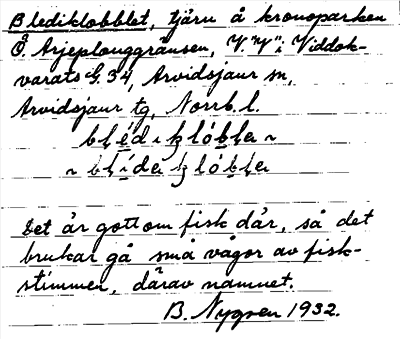 Blediklobblet, tjärn å kronoparken
Ö. Arjeplouggränsen, V. "V" i Viddok-
varats G. 34, Arvidsjaur sn,
Arvidsjaur tg, Norrb. l.
blédiklóbla ~
~ blídaklóbla
Det är gott om fisk där, så det
brukar gå små vågor av fisk-
stimmen, därav namnet.
B. Nygren 1932.